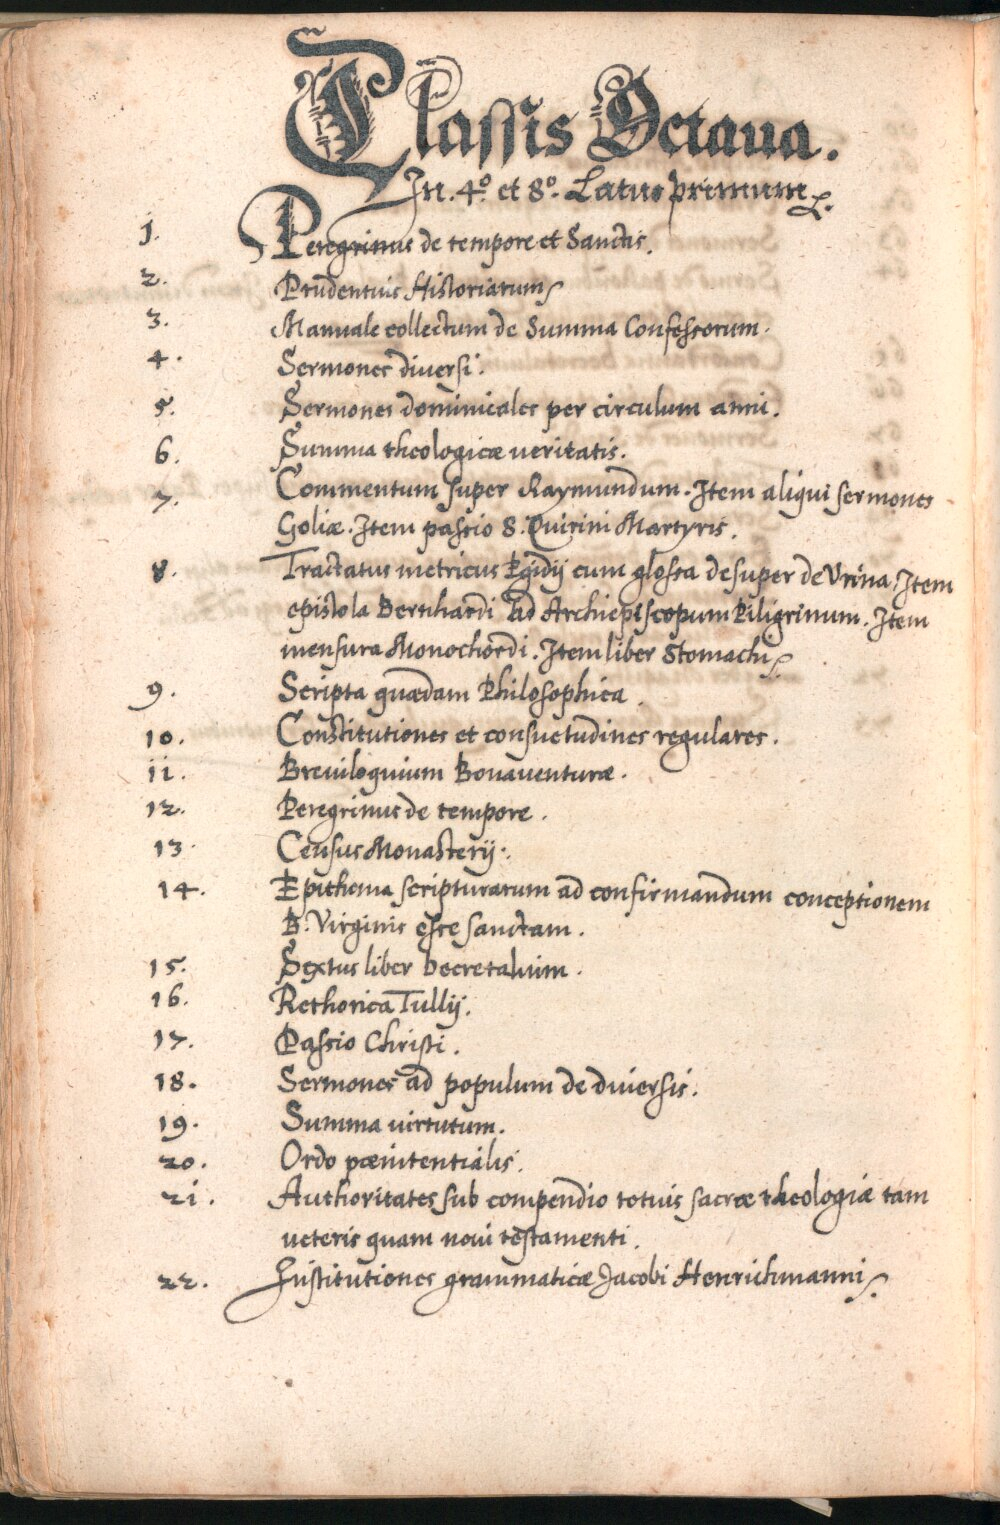 Classis Octaua.
In. 4º. et 8º. Latus primum.
1. Peregrinus de tempore et Sanctis.
2. Prudentius Historiarum
3. Manuale collectum de Summa Confessorum.
4. Sermones diuersi.
5. Sermones dominicales per circulum anni.
6. Summa theologicæ ueritatis.
7. Commentum super Raymundum. Item aliqui sermones
Goliæ. Item passio S. Quirini Martyris.
8. Tractatus metricus Egidij cum glossa desuper de Vrina. Item
epistola Bernhardi ad Archiepiscopum Piligrinum. Item
mensura Monochordi. Item liber Stomachi
9. Scripta quædam Philosophica.
10. Constitutiones et consuetudines regulares.
11. Breuiloquium Bonauenturæ.
12. Peregrinus de tempore.
13. Census Monasterij.
14. Epithema scripturarum ad confirmandum conceptionem
B. Virginis esse sanctam.
15. Sextus liber Decretalium.
16. Rethorica Tullij.
17. Passio Christi.
18. Sermones ad populum de diuersis.
19. Summa uirtutum.
20. Ordo pœnitentialis.
21. Authoritates sub compendio totius sacræ theologiæ tam
ueteris quam noui testamenti.
22. Institutiones grammaticæ Jacobi Henrichmanni